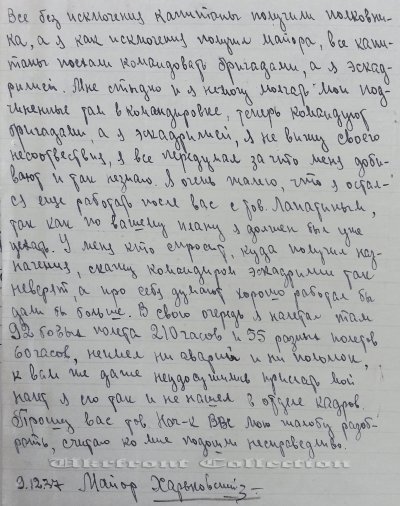 Все без исключения капитаны получили полковни-
ка, а я как исключения получил майора, все капи-
таны поехали командовать бригадами, а я эскад-
рилией. Мне стыдно и я немогу молчать мои под-
чиненные там в командировке, теперь командуют
бригадами, а я эскадрилией, я не вижу своего
несоотвествия, я все передумал за что меня доби-
вают и так незнаю. Я очень жалею, что я остал-
ся еще работать после вас с тов. Лопатиным,
так как по вашему плану я должен был уже
уехать. У меня кто спросит, куда получил наз-
начения, скажу командиром эскадрилии так
неверят, а про себя думают хорошо работал бы
дали бы больше. В свою очередь я налетал там
92 боевых полета 210 часов и 55 разных полетов
60 часов, неимел ни аварий и ни поломок,
к вам же даже неудосужились прислать мой
налет я его так и не нашел в отделе кадров.
Прошу вас тов Нач-к ВВС мою жалобу разоб-
рать, считаю ко мне подошли несправедливо.
9.12.37 Майор Харьковский
Ukrfront Collection